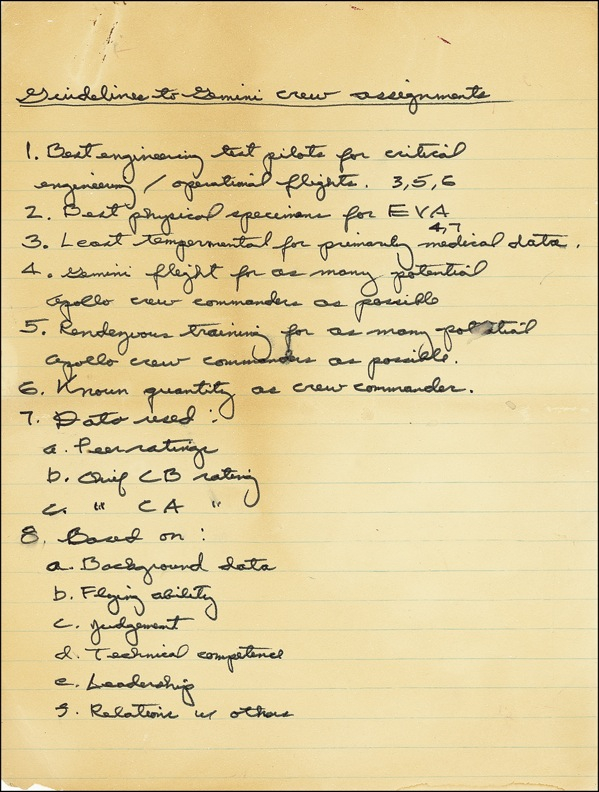 Guidelines to Gemini crew assignments
1. Best engineering test pilots for critical
engineering / operational flights. 3,5,6
2. Best physical specimens for EVA
4,7
3. Least tempermental for primarily medical data.
4. Gemini flight for as many potential
apollo crew commanders as possible
5. Rendezvous training for as many potential
apollo crew commanders as possible.
6. Known quantity as crew commander.
7. Data used :
a. Peer ratings
b. Chief CB rating
c. " CA "
8. Based on :
a. Background data
b. Flying ability
c. Judgement
d. Technical competence
e. Leadership
f. Relations w/ others